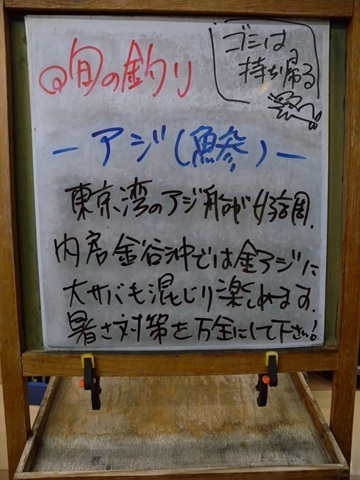 旬の釣り
ゴミは
持ち帰る
ーアジ(鯵)ー
東京湾のアジ船が好調.
内房金谷沖では金アジに
大サバも混じり楽しめます.
暑さ対策を万全にして下さい!